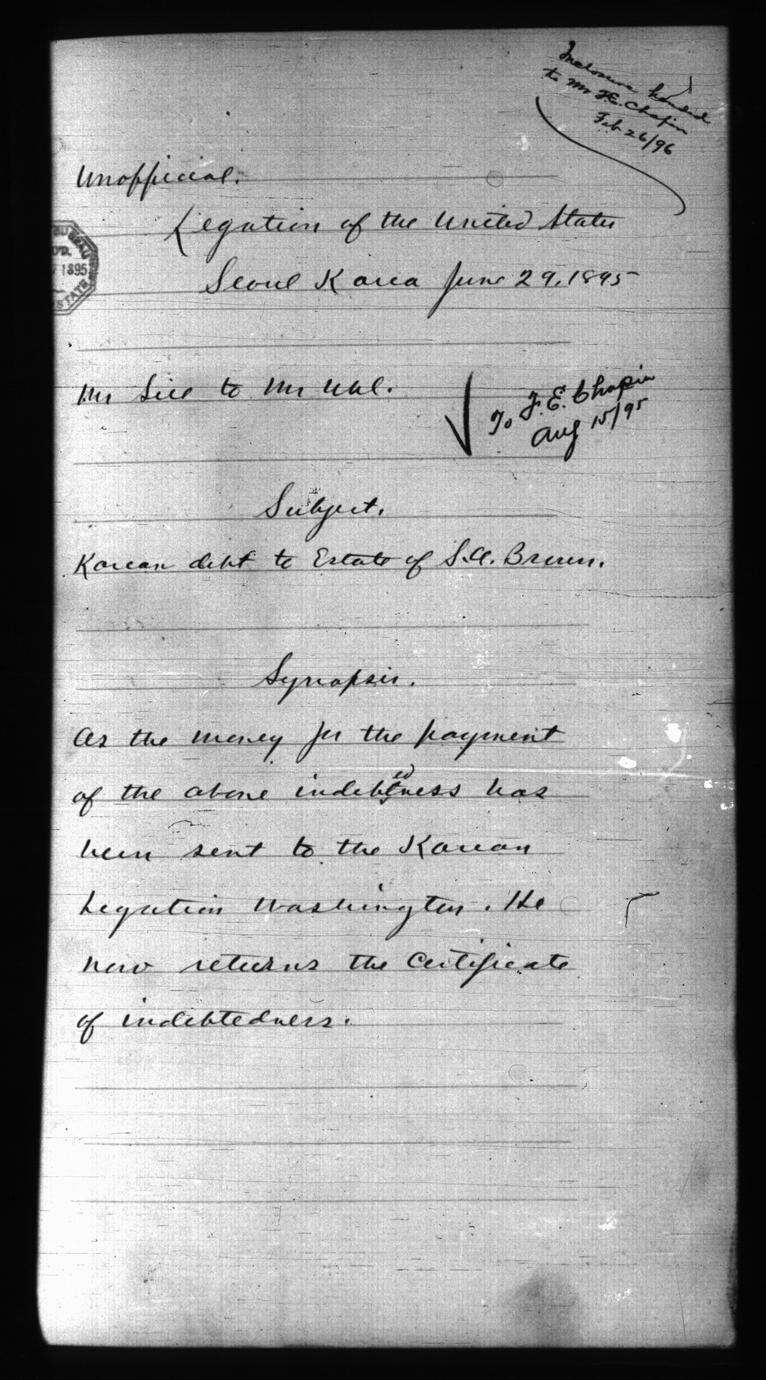 Inclosure handed
to Mr F.E. Chapin
Feb 26/96
Unofficial.
Legation of the United States
Seoul Korea June 29, 1895
1895
STATE
Mr Sill to Mr Uhl.
To F.E. Chapin
Aug 15/95
Subject.
Korean debt to Estate of S.A. Brown.
Synopsis.
As the money for the payment
of the above indebtedness has
been sent to the Korean
Legation Washington. He
now returns the Certificate
of indebtedness.